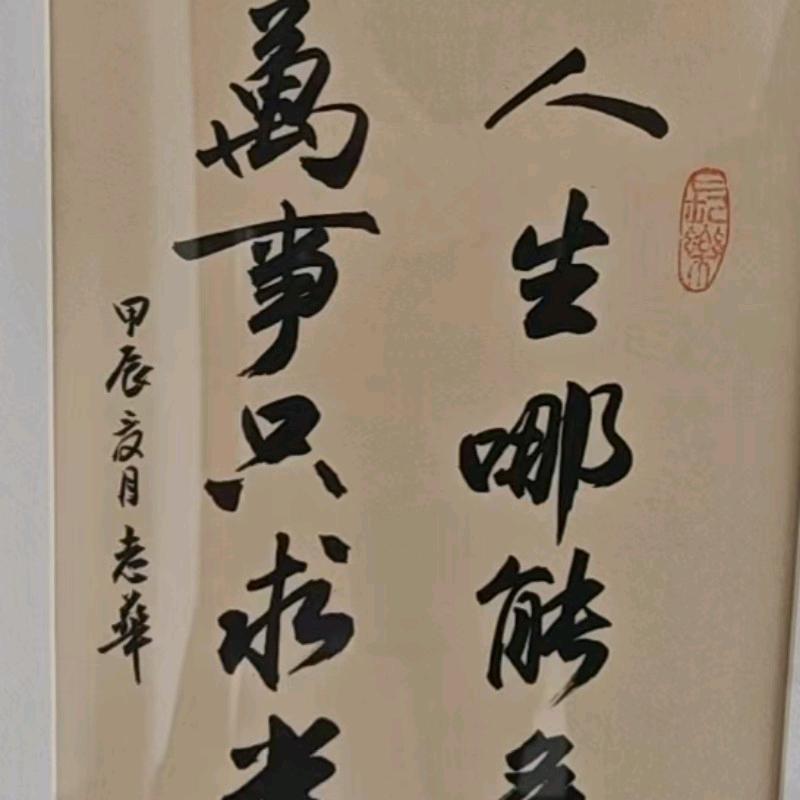 人生哪能
萬事只求半
甲辰夏月志華
長樂